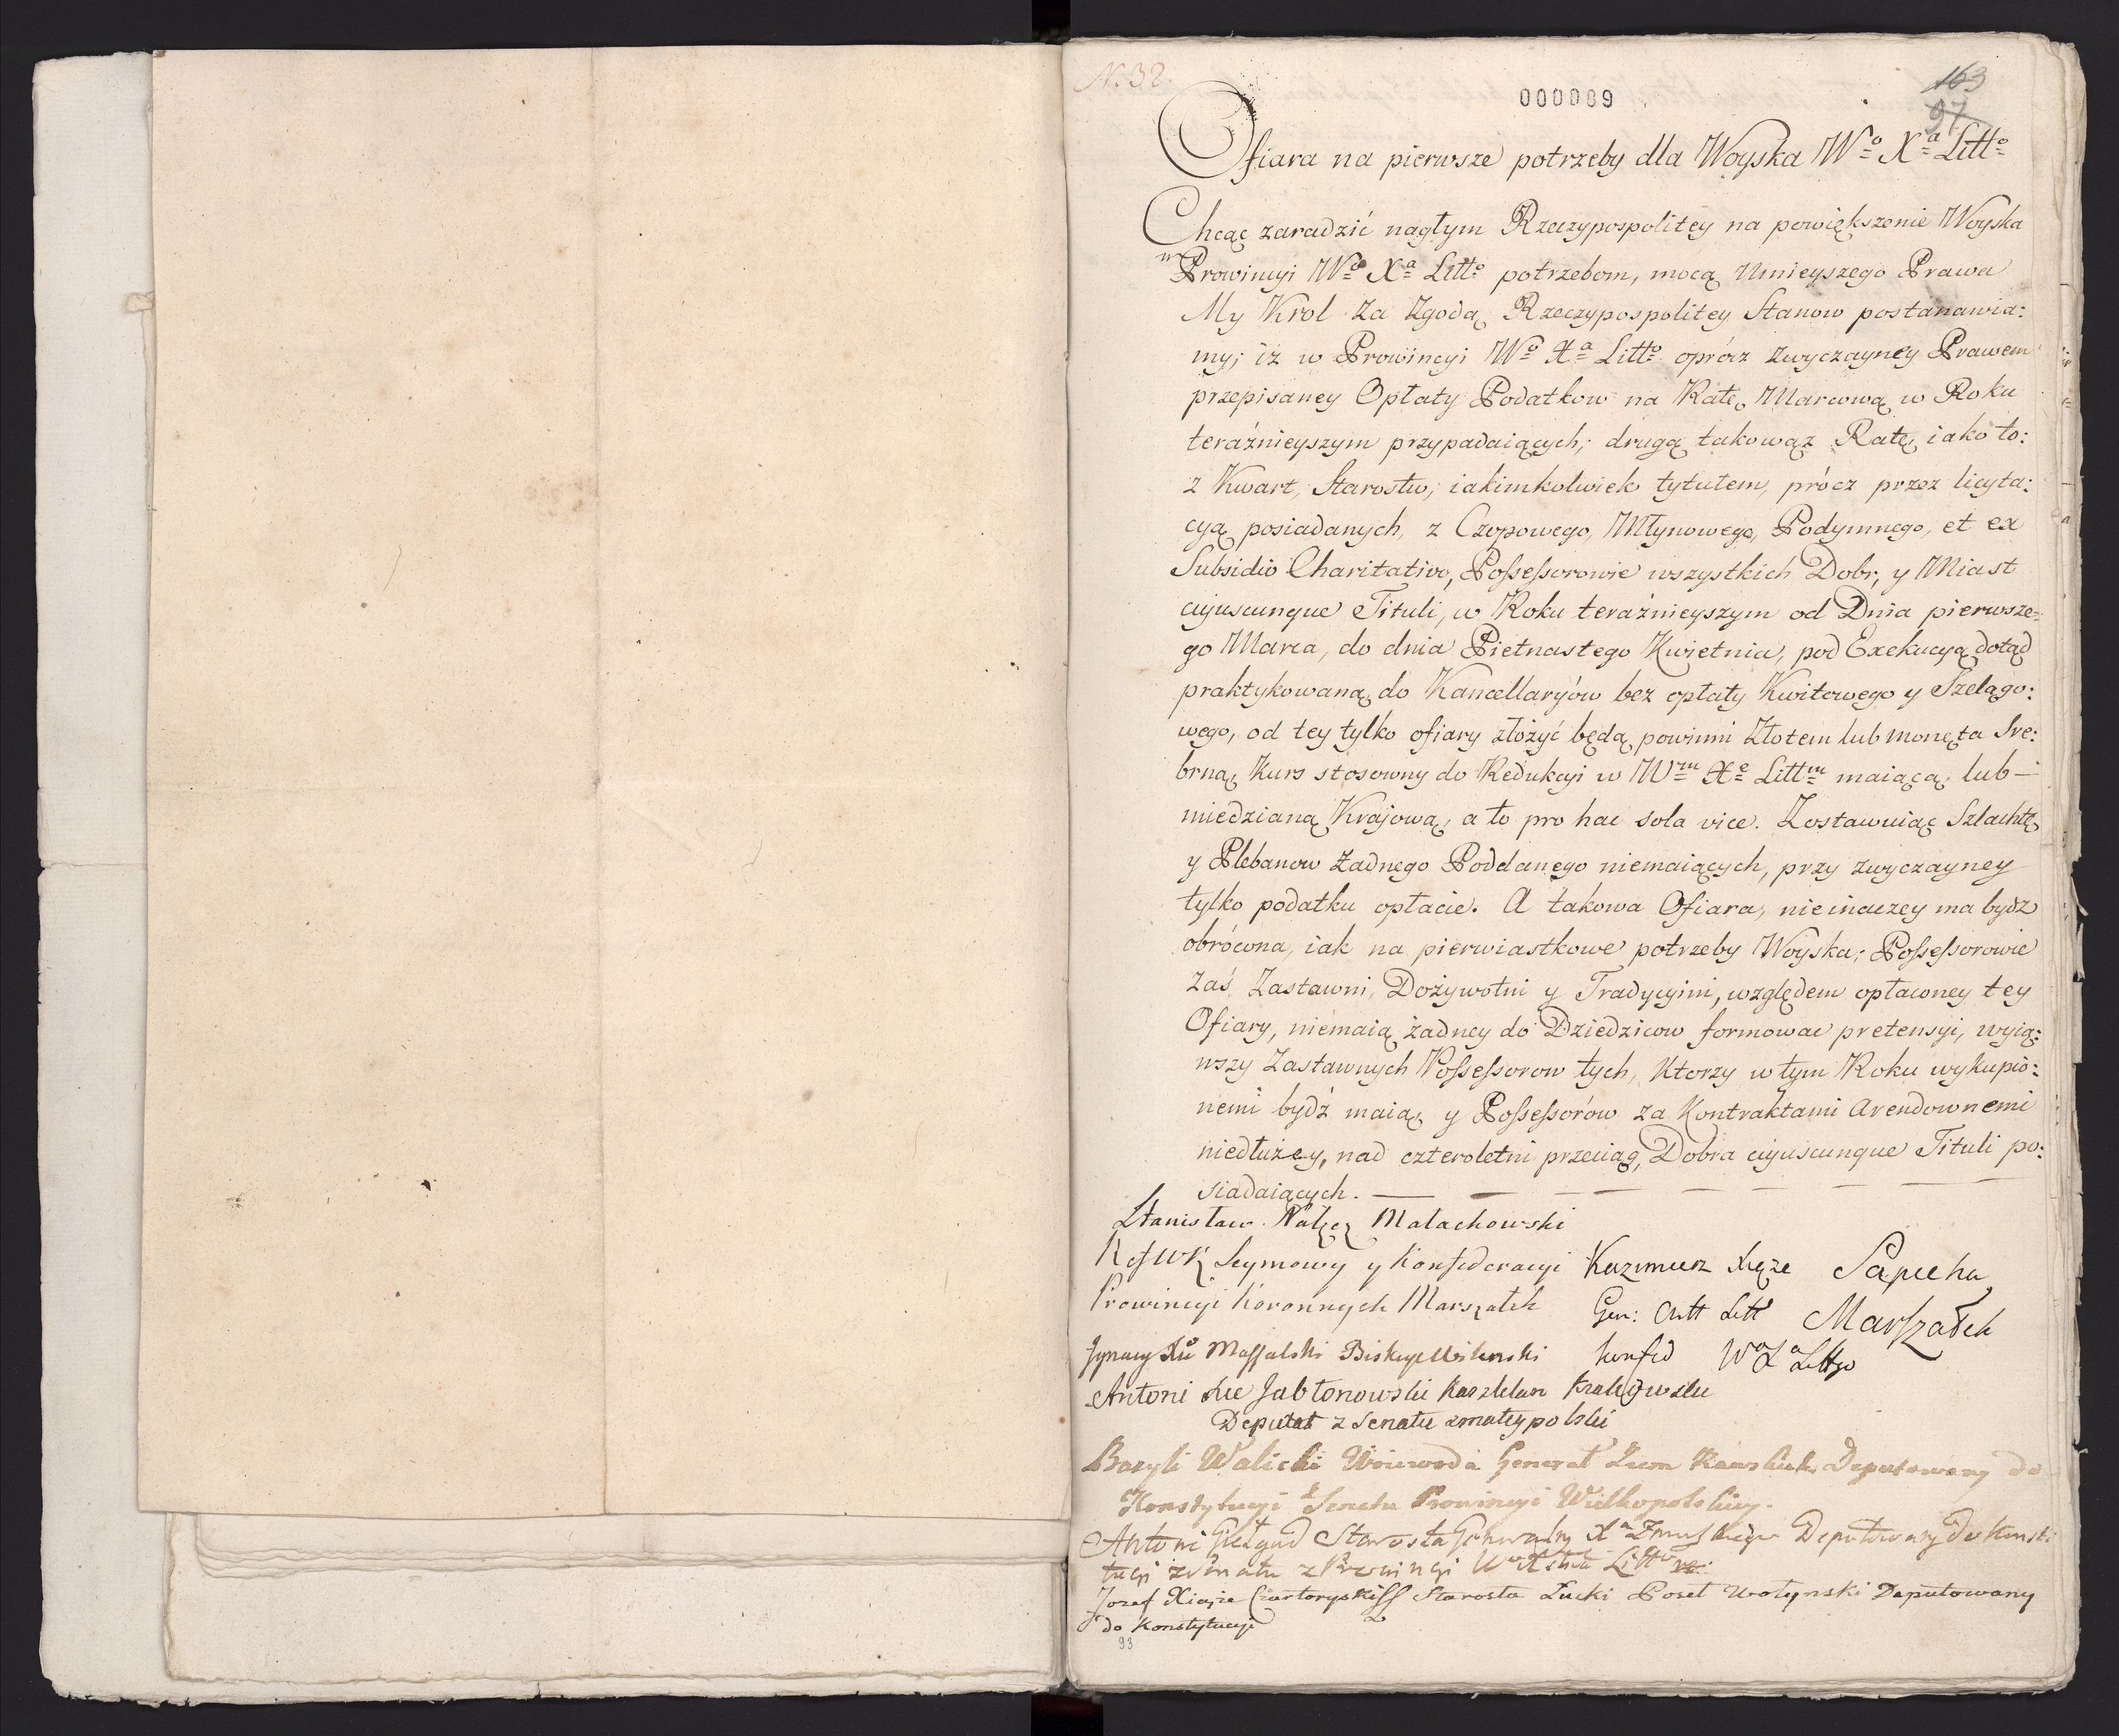 N. 32
000009
163
97
Ofiara na pierwsze potrzeby dla Woyska Wº Xª Littº
Chcąc zaradzić nagłym Rzeczypospolitey na powiększenie Woyska
w Prowincyi Wº Xª Littº potrzebom, mocą Ninieyszego Prawa
My Krol Za Zgodą Rzeczypospolitey Stanow postanawia:
my; iz w Prowincyi Wº Xª Littº oprócz zwyczayney Prawem
przepisaney Opłaty Podatkow na Ratę Marcową w Roku
teraźnieyszym przypadaiących; drugą takowąz Ratę iako to:
z Kwart, Starostw, iakimkolwiek tytułem, prócz przez licyta:
cyą posiadanych, z Czopowego, Młynowego, Podymnego, et ex
Subsidio Charitativo, Possessorowie wszystkich Dobr, y Miast
cujuscunque Tituli, w Roku teraźnieyszym od Dnia pierwsze=
go Marca, do dnia Pietnastego Kwietnia, pod Exekucyą dotąd
praktykowaną do Kancellaryów bez opłaty Kwitowego y Szelągo:
wego, od tey tylko ofiary złożyć będą powinni Złotem lub monętą Sre:
brną Kurs stosowny do Redukcyi w Wm Xe Littm maiącą, lub —
miedzianą Krajową, a to pro hac sola vice. Zostawuiąc Szlachtę
y Plebanow Żadnego Poddanego niemaiących, przy zwyczayney
tylko podatku opłacie. A takowa Ofiara, nieinaczey ma bydz
obrócona, iak na pierwiastkowe potrzeby Woyska; Possessorowie
zaś Zastawni, Dożywotni y Tradycyini, względem opłaconey tey
Ofiary, niemaią żadney do Dziedzicow formowac pretensyi, wyią:
wszy Zastawnych Possessorow tych, Ktorzy w tym Roku wykupio:
nemi bydź maią, y Possessorów za Kontraktami Arendownemi
niedłużey, nad czteroletni przeciąg, Dobra cujuscunque Tituli po:
siadaiących. —
Stanisław Nałęcz Małachowski
R W K Seymowy y Konfederacyi
Prowincyi Koronnych Marszałek
Kazimierz Xiąże Sapieha
Gen: Artt Litt Marszałek
Konfed Wº Xª Littgo
Ignacy Xże Massalski Biskup Wilenski
Antoni Xże Jabłonowski Kasztelan Krakowski
Deputat z Senatu z małeypolski
Bazyli Walicki Woiewoda Generał Ziem Rawskich Deputowany do
Konstytucyi z Senatu Prowincyi Wielkopolskiey.
Antoni Giełgud Starosta Generalny Xª Zmuskiego Deputowany do Konsti
tucyi z Senatu z Prowincyi Wº Xstwa Littº
Jozef Xiąże Czartoryski Starosta Łucki Poseł Wołynski Deputowany
do Konstytucyi
93